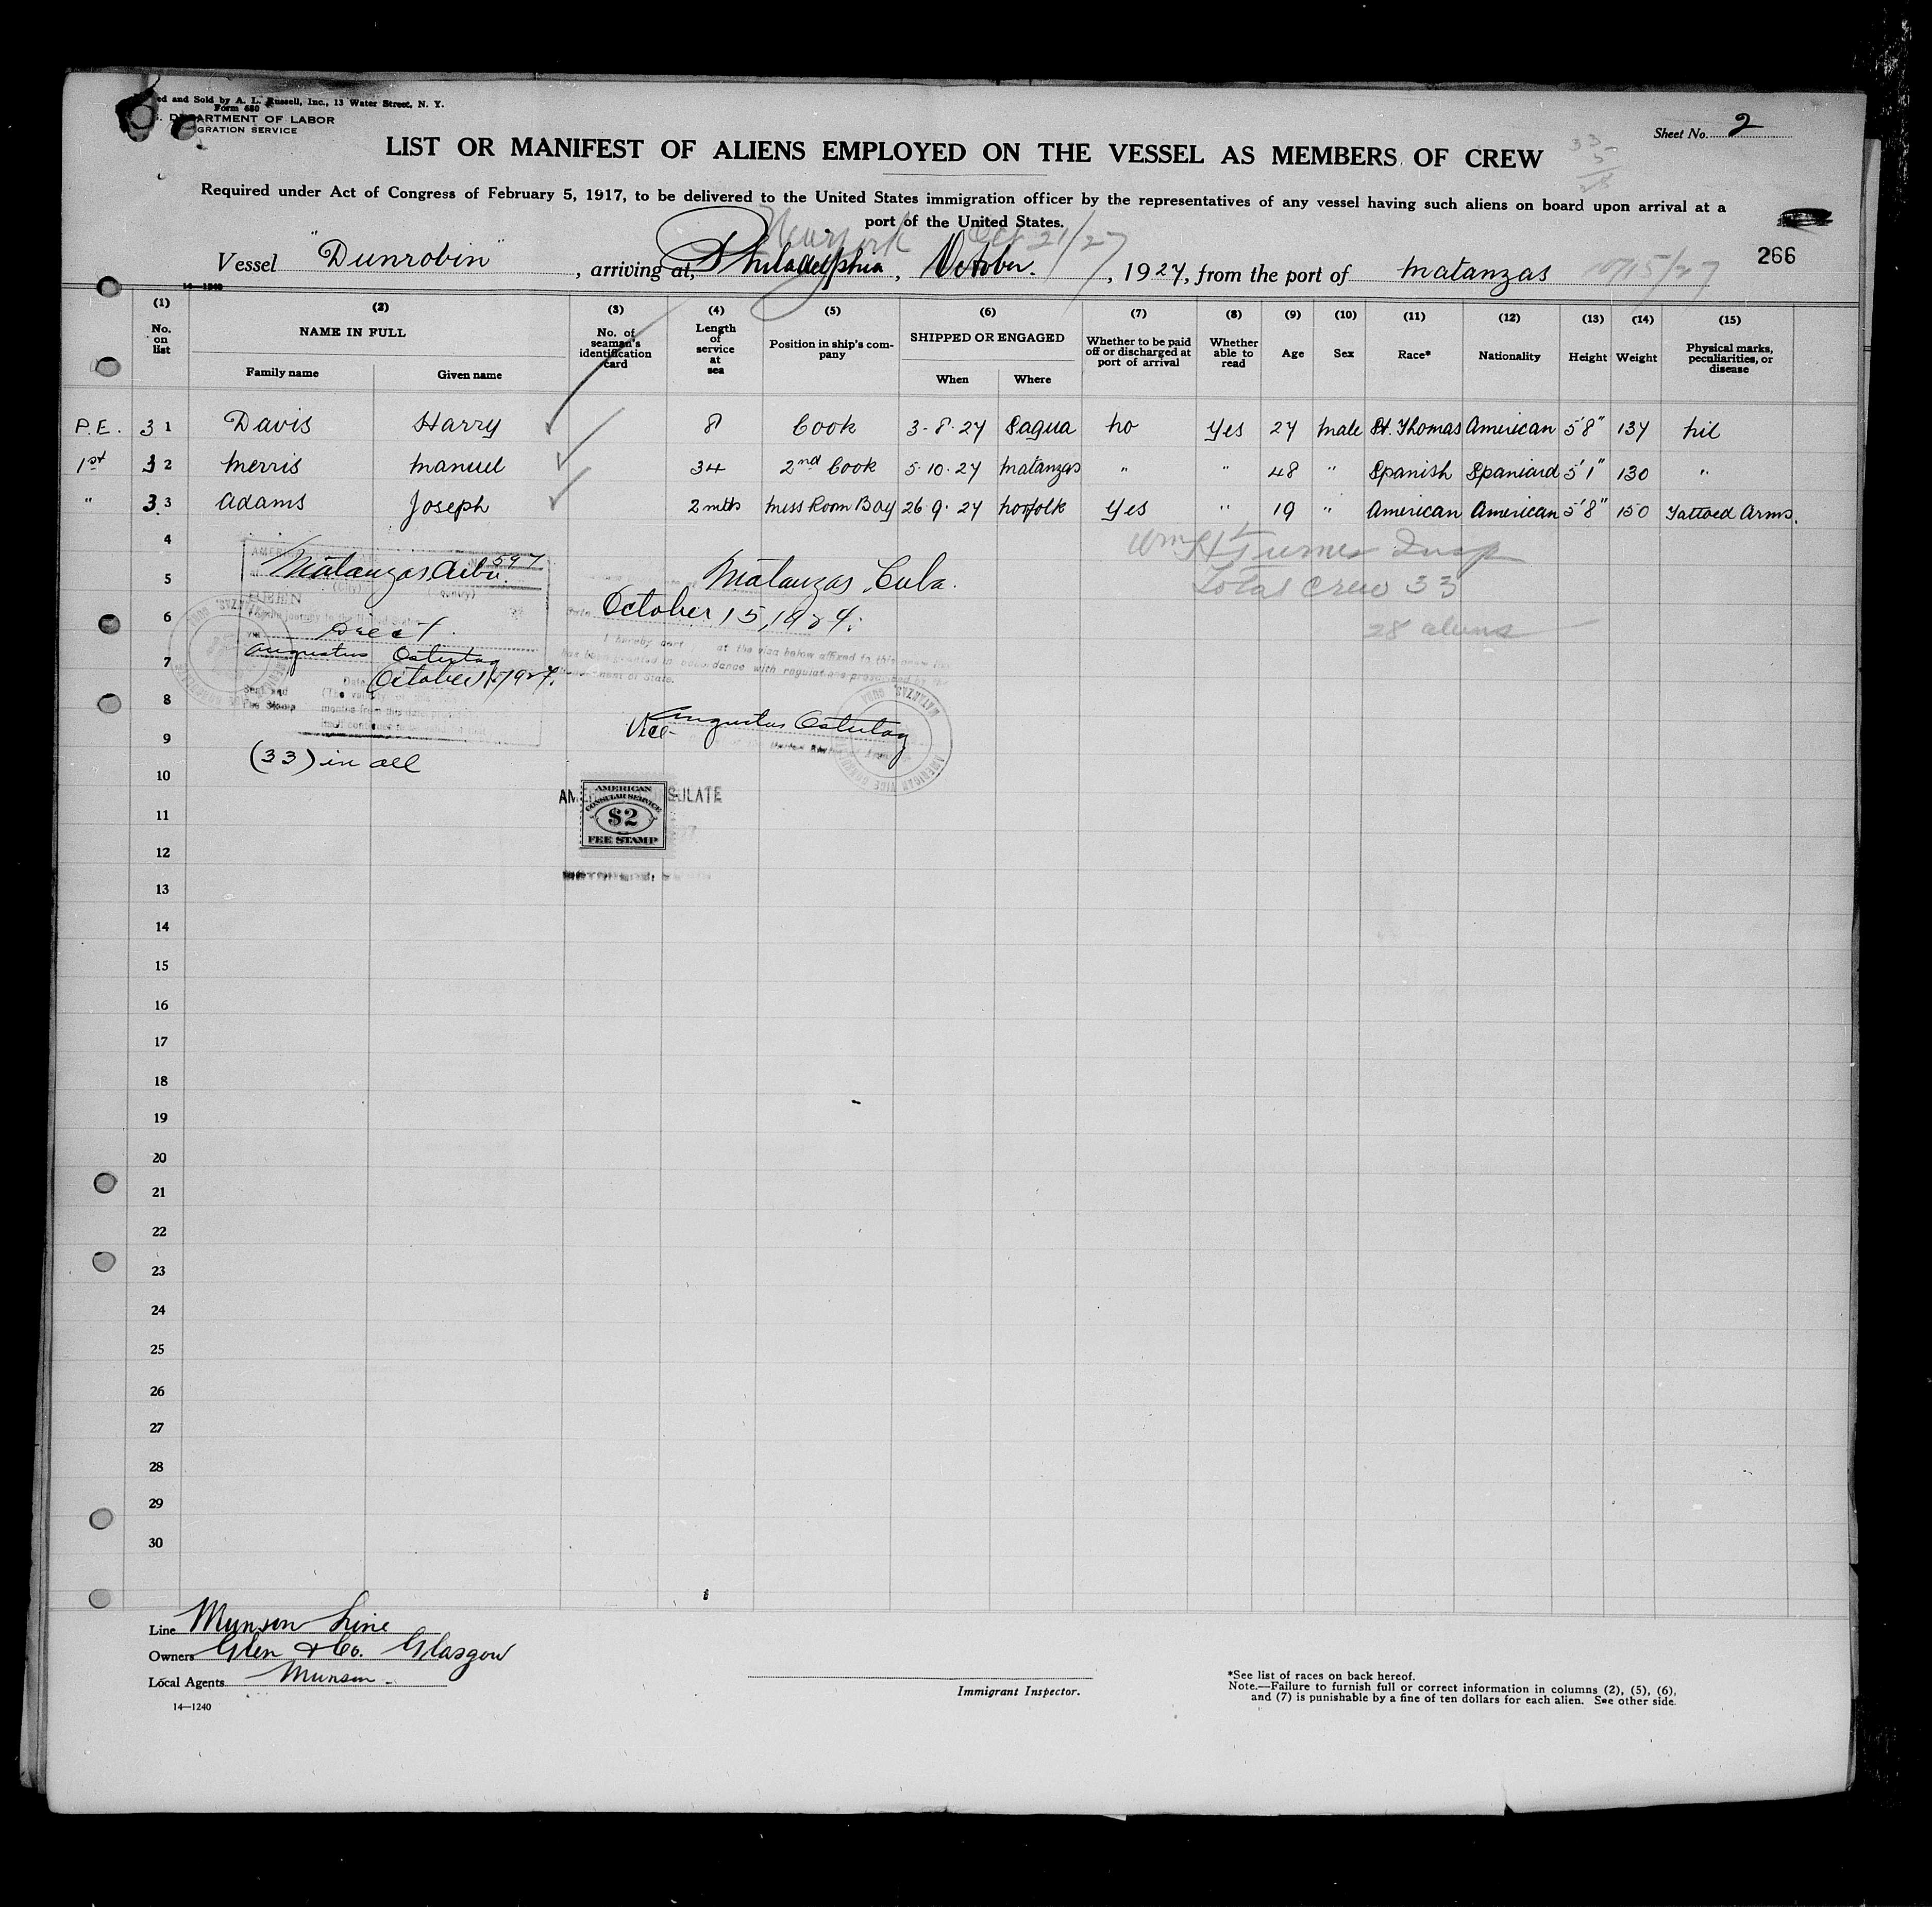 ed and Sold by A. L. Russell, Inc., 13 Water Street, N. Y.
Form 680
DEPARTMENT OF LABOR
GRATION SERVICE
Sheet No. 2
LIST OR MANIFEST OF ALIENS EMPLOYED ON THE VESSEL AS MEMBERS OF CREW
Required under Act of Congress of February 5, 1917, to be delivered to the United States immigration officer by the representatives of any vessel having such aliens on board upon arrival at a
port of the United States.
New York Oct 21/27
266
Vessel "Dunrobin", arriving at, Philadelphia, October., 1927, from the port of Matanzas 10/15/27
14-1240
(1) (2) (3) (4) (5) (6) (7) (8) (9) (10) (11) (12) (13) (14) (15)
No. on list NAME IN FULL Family name Given name No. of seaman's identification card Length of service at sea Position in ship's company SHIPPED OR ENGAGED When Where Whether to be paid off or discharged at port of arrival Whether able to read Age Sex Race* Nationality Height Weight Physical marks, peculiarities, or disease
P.E. 31 Davis Harry 8 Cook 3-8-27 Sagua No Yes 27 Male St. Thomas American 5'8" 137 Nil
1st 32 Merris Manuel 34 2nd Cook 5-10-27 Matanzas " " 48 " Spanish Spaniard 5'1" 130 "
" 33 Adams Joseph 2 mths Mess Room Boy 26-9-27 Norfolk Yes " 19 " American American 5'8" 150 Tattoed Arms.
4
Wm H Turner Insp
5
Total Crew 33
6
28 aliens
7
8
9
10
11
12
13
14
15
16
17
18
19
20
21
22
23
24
25
26
27
28
29
30
597
Matanzas, Cuba.
SEEN
Augustus Ostertag
October 15, 1927.
Seal and
Fee Stamp
(33) in all
Matanzas, Cuba.
October 15, 1927.
I hereby cert at the visa below affixed to this
has been granted in accordance with regulations prescribed by the
ment of State.
Augustus Ostertag
Vice
MATANZAS, CUBA
AMERICAN VICE CONSUL
AMERICAN
CONSULAR SERVICE
$2
FEE STAMP
Line Munson Line
Owners Glen & Co. Glasgow
Local Agents Munson.
14—1240
Immigrant Inspector.
*See list of races on back hereof.
Note.—Failure to furnish full or correct information in columns (2), (5), (6),
and (7) is punishable by a fine of ten dollars for each alien. See other side.